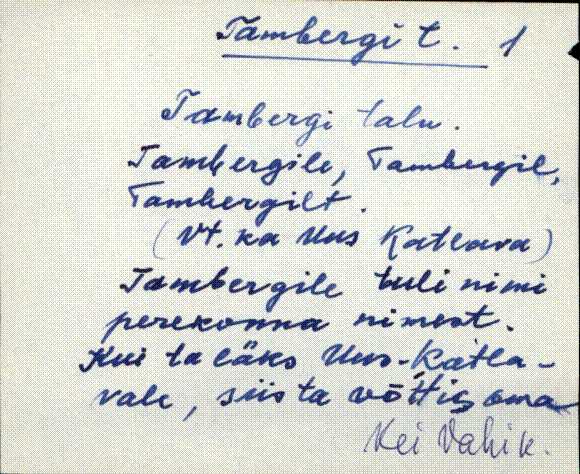 Tambergi t. 1
Tambergi talu.
Tambergile, Tambergil,
Tambergilt.
(Vt. ka Uus Katlava)
Tambergile tuli nimi
perekonna nimest.
Kui ta läks Uus-Katla-
vale, siis ta võttis oma
Kei Vahik.